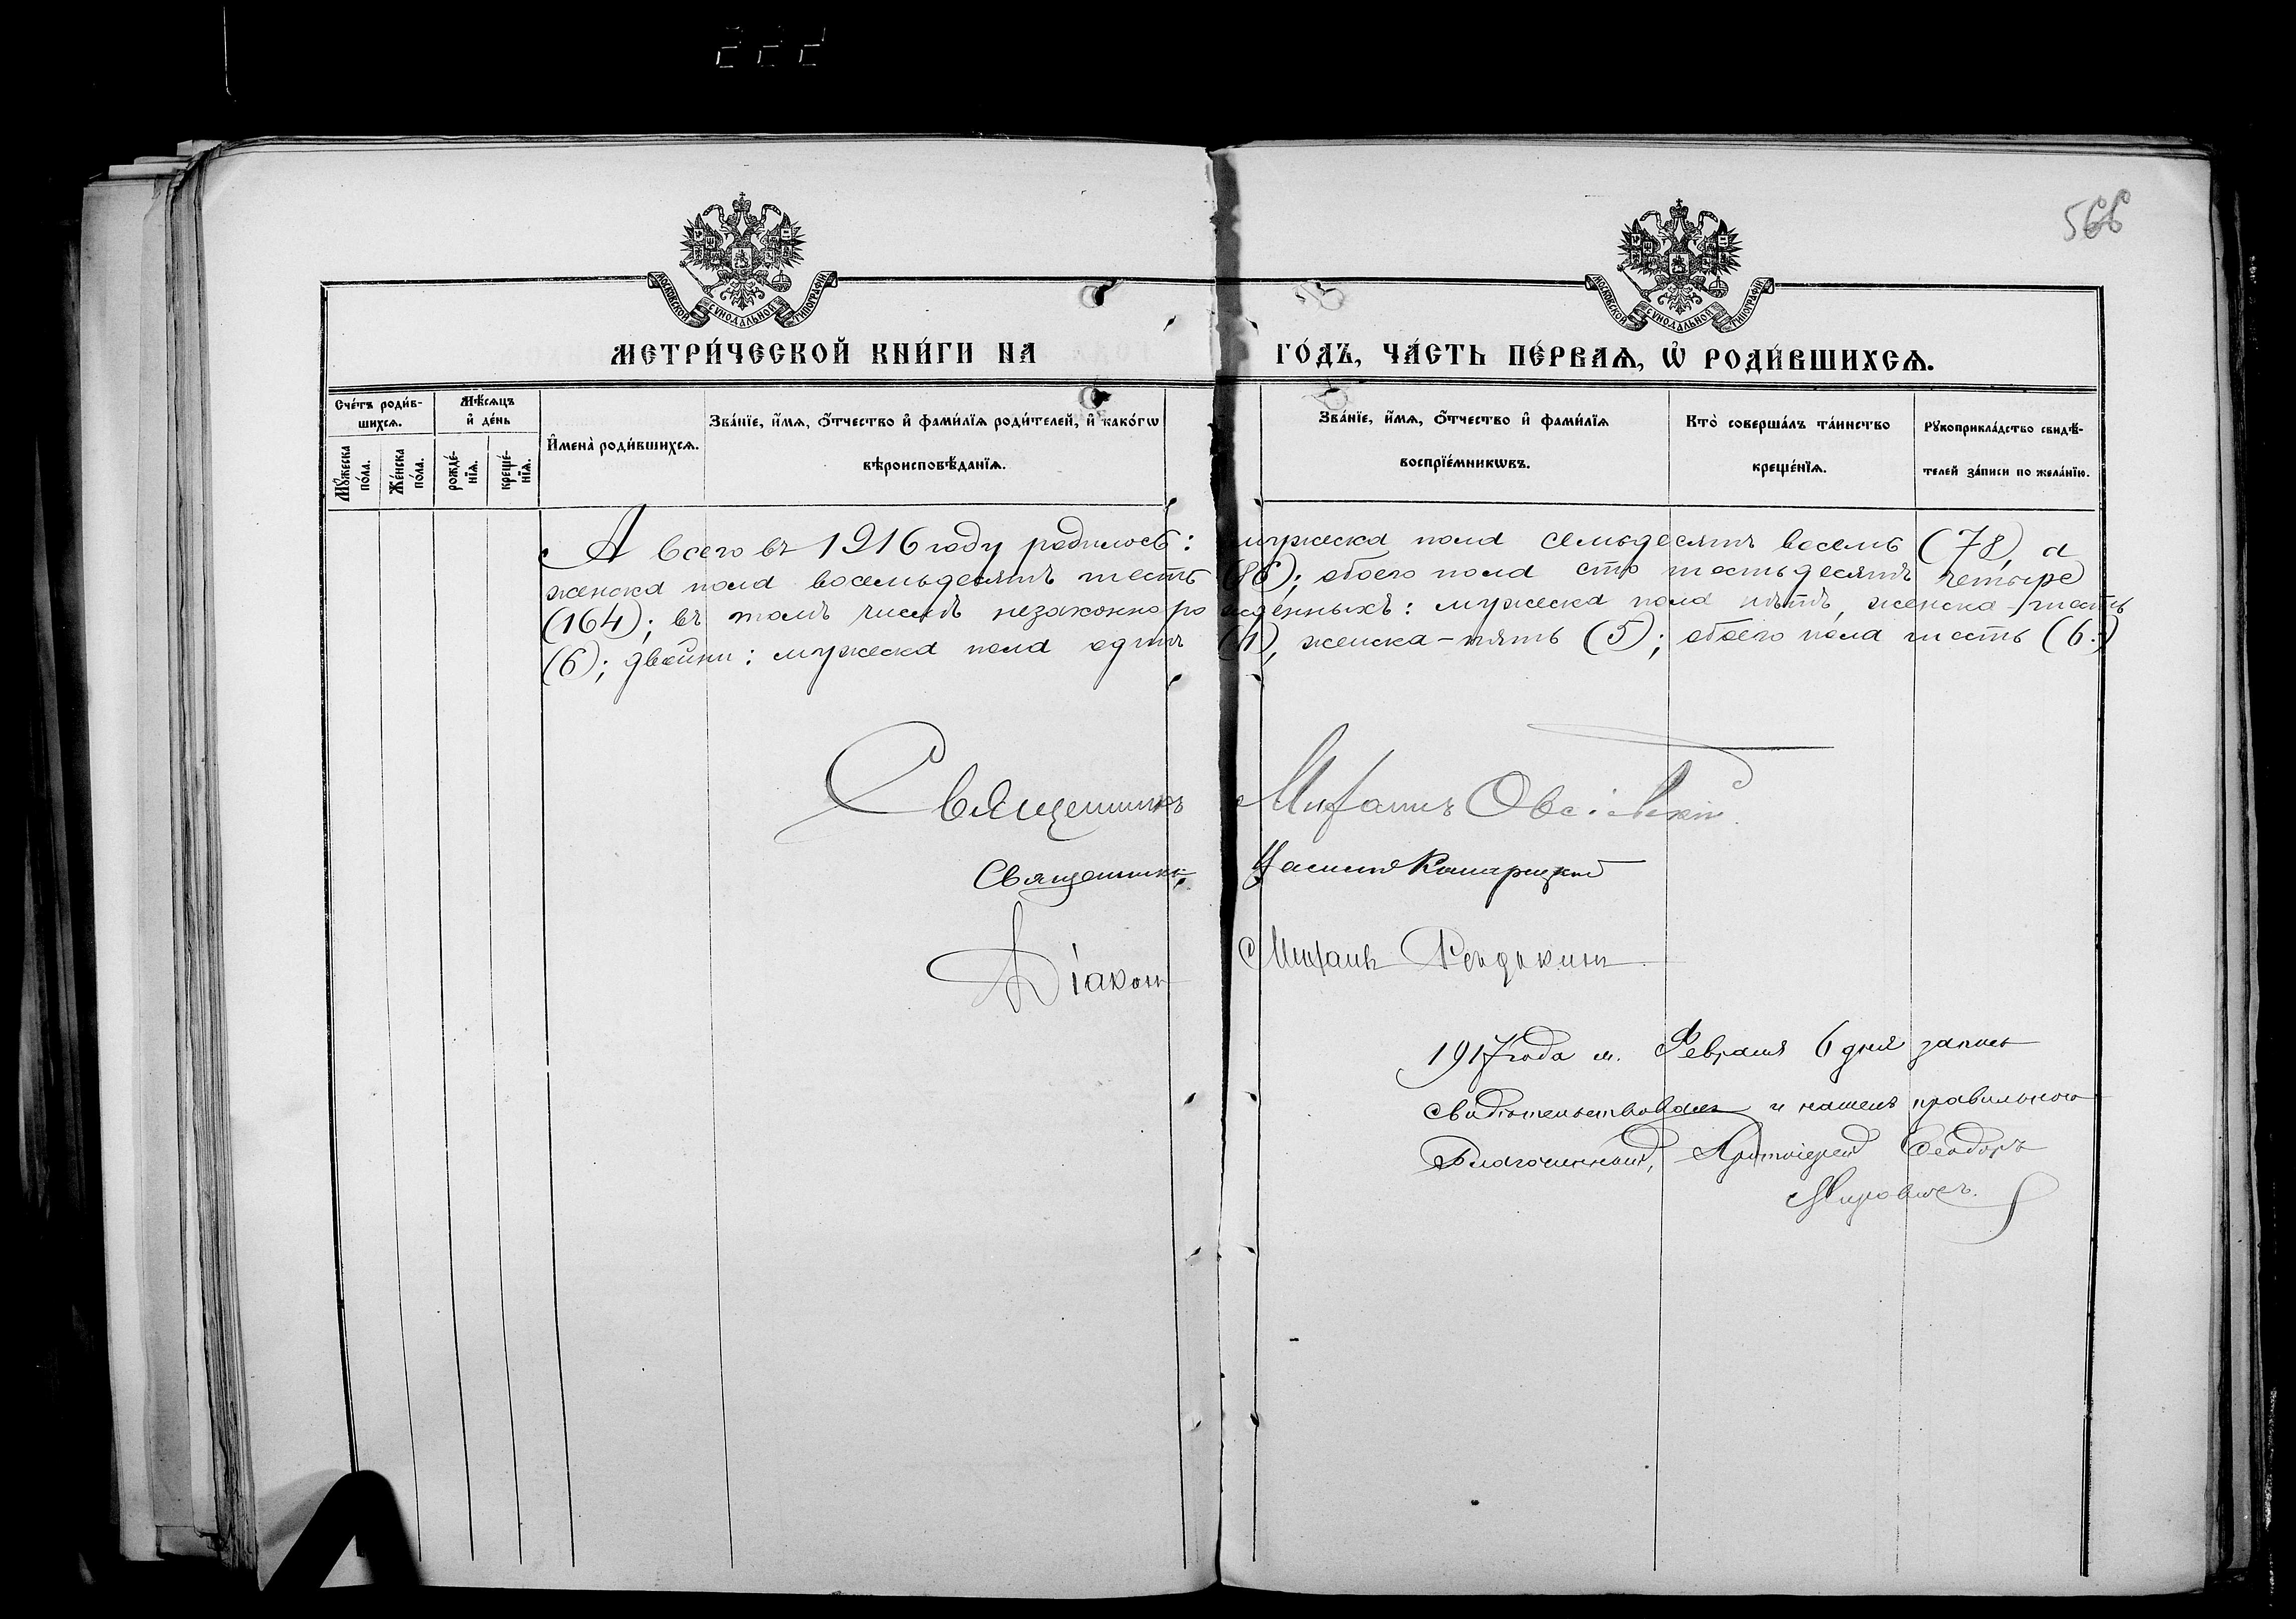 566
МОСКОВСКОЙ СУНОДАЛЬНОЙ ТИПОГРАФІИ
МОСКОВСКОЙ СУНОДАЛЬНОЙ ТИПОГРАФІИ
МЕТРИ́ЧЕСКОЙ КНИ́ГИ НА ГО́ДЪ, ЧА́СТЬ ПЕ́РВАѦ, Ѡ҆ РОДИ́ВШИХСѦ.
Сче́тъ роди́в-
шихсѧ.
Мꙋ́жеска по́ла.
Же́нска по́ла.
Мѣ́сѧцъ
и҆ де́нь
рожде́-
нїѧ.
креще́-
нїѧ.
И҆мена̀ роди́вшихсѧ.
Зва́нїе, и҆́мѧ, ѻ҆́тчество и҆ фами́лїѧ роди́телей, и҆ како́гѡ
вѣроисповѣ́данїѧ.
Зва́нїе, и҆́мѧ, ѻ҆́тчество и҆ фами́лїѧ
воспрїе́мникѡвъ.
Кто̀ соверша́лъ та́инство
креще́нїѧ.
Рꙋкоприкла́дство свидѣ́-
телей за́писи по жела́нїю.
А всего въ 1916 году родилось: мужеска пола семьдесятъ восемь (78), а
женска пола восемьдесятъ шесть (86); обоего пола сто шестьдесятъ четыре
(164); въ томъ числѣ незаконнорожденныхъ: мужеска пола нѣтъ, женска - шесть
(6); двойни: мужеска пола одинъ (1), женска - пять (5); обоего пола шесть (6.)
Священникъ Михаилъ
Священникъ
Діаконъ Михаилъ
1917 года м. Февраля 6 дня запись
свидѣтельствовалъ и нашелъ правильною
Благочинный, Протоіерей Ѳеодоръ
Мировичъ.